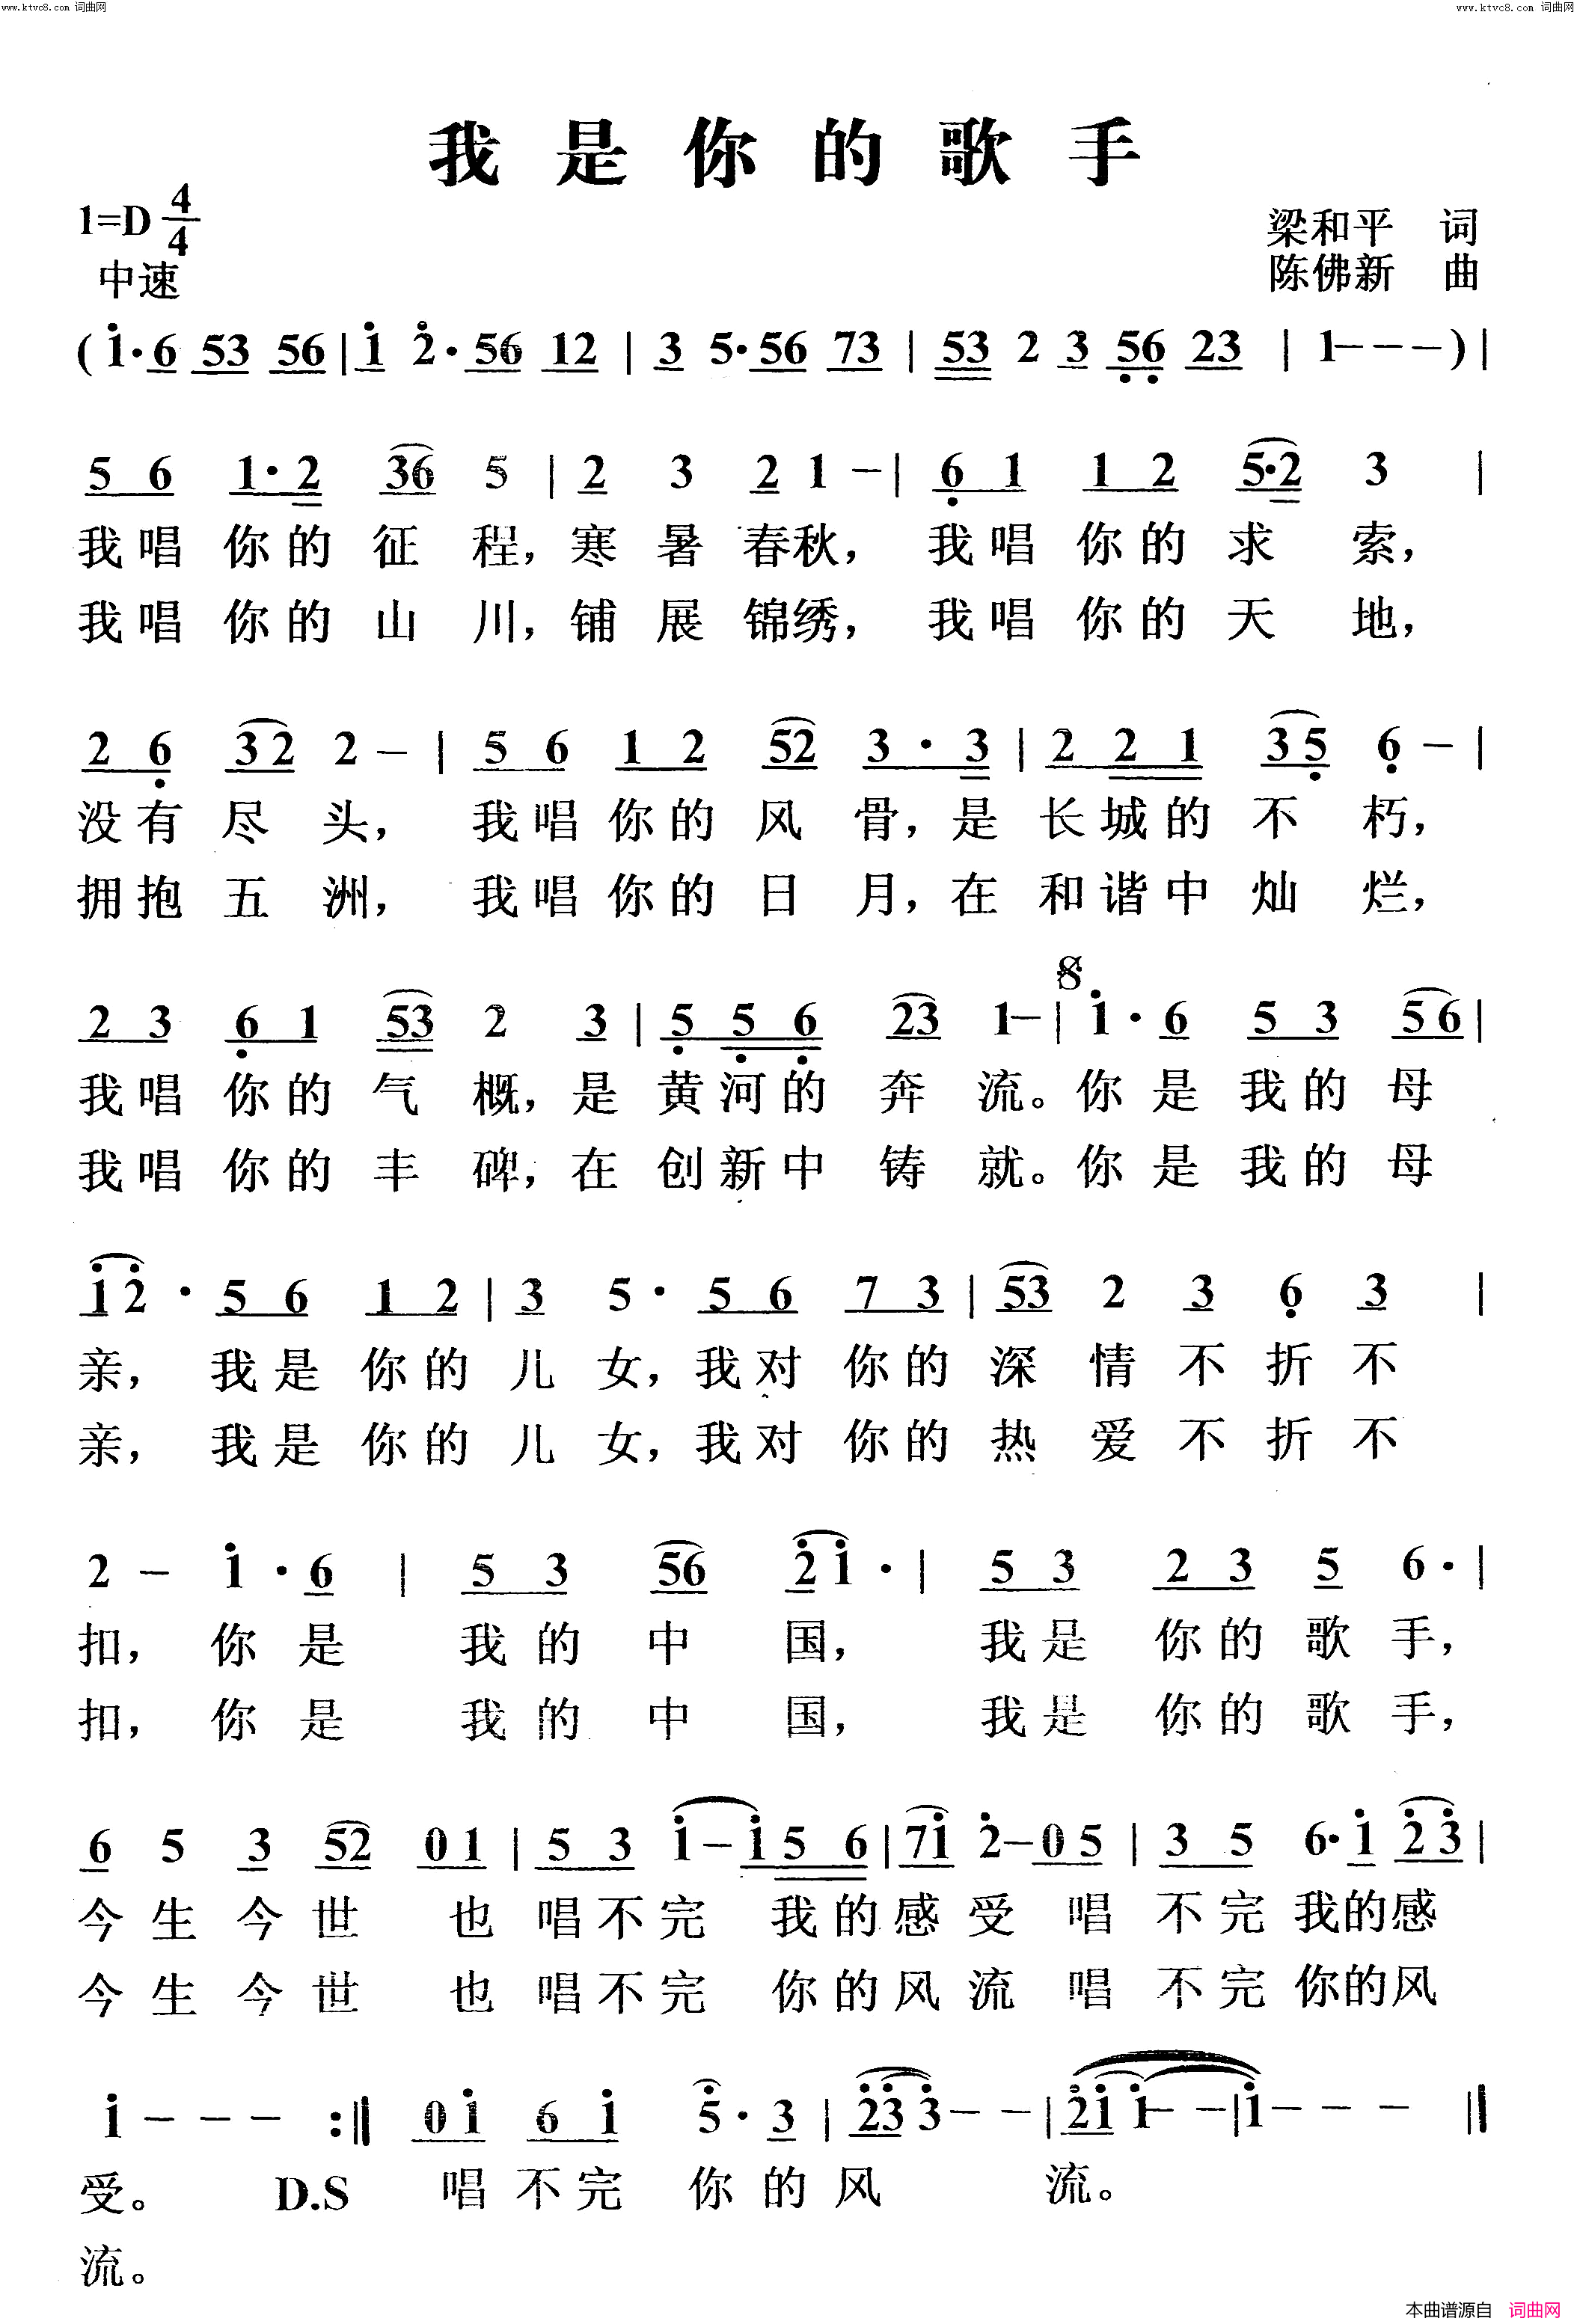 www.ktvc8.com 词曲网 www.ktvc8.com 词曲网
我是你的歌手
1=D 4/4
梁和平 词
中速
陈佛新 曲
(1·6 53 56 | 1 2·56 12 | 3 5·56 73 | 53 2 3 56 23 | 1--- )|
5 6 1·2 36 5 | 2 3 2 1 - | 6 1 1 2 5·2 3 |
我唱你的征程，寒暑春秋，我唱你的求索，
我唱你的山川，铺展锦绣，我唱你的天地，
2 6 32 2 - | 5 6 1 2 52 3 · 3 | 2 2 1 35 6 - |
没有尽头，我唱你的风骨，是长城的不朽，
拥抱五洲，我唱你的日月，在和谐中灿烂，
2 3 6 1 53 2 3 | 5 5 6 23 1 - | 𝄋 1 · 6 5 3 56 |
我唱你的气概，是黄河的奔流。你是我的母
我唱你的丰碑，在创新中铸就。你是我的母
12 · 5 6 1 2 | 3 5 · 5 6 7 3 | 53 2 3 6 3 |
亲，我是你的儿女，我对你的深情不折不
亲，我是你的儿女，我对你的热爱不折不
2 - 1 · 6 | 5 3 56 21 · | 5 3 2 3 5 6 · |
扣，你是我的中国，我是你的歌手，
扣，你是我的中国，我是你的歌手，
6 5 3 52 0 1 | 5 3 1 - 1 5 6 | 71 2 - 0 5 | 3 5 6·1 23 |
今生今世也唱不完我的感受唱不完我的感
今生今世也唱不完你的风流唱不完你的风
1 - - - :‖ 0 1 6 1 5 · 3 | 23 3 - - | 21 1 - - | 1 - - - ‖
受。 D.S 唱不完你的风流。
流。
本曲谱源自 词曲网